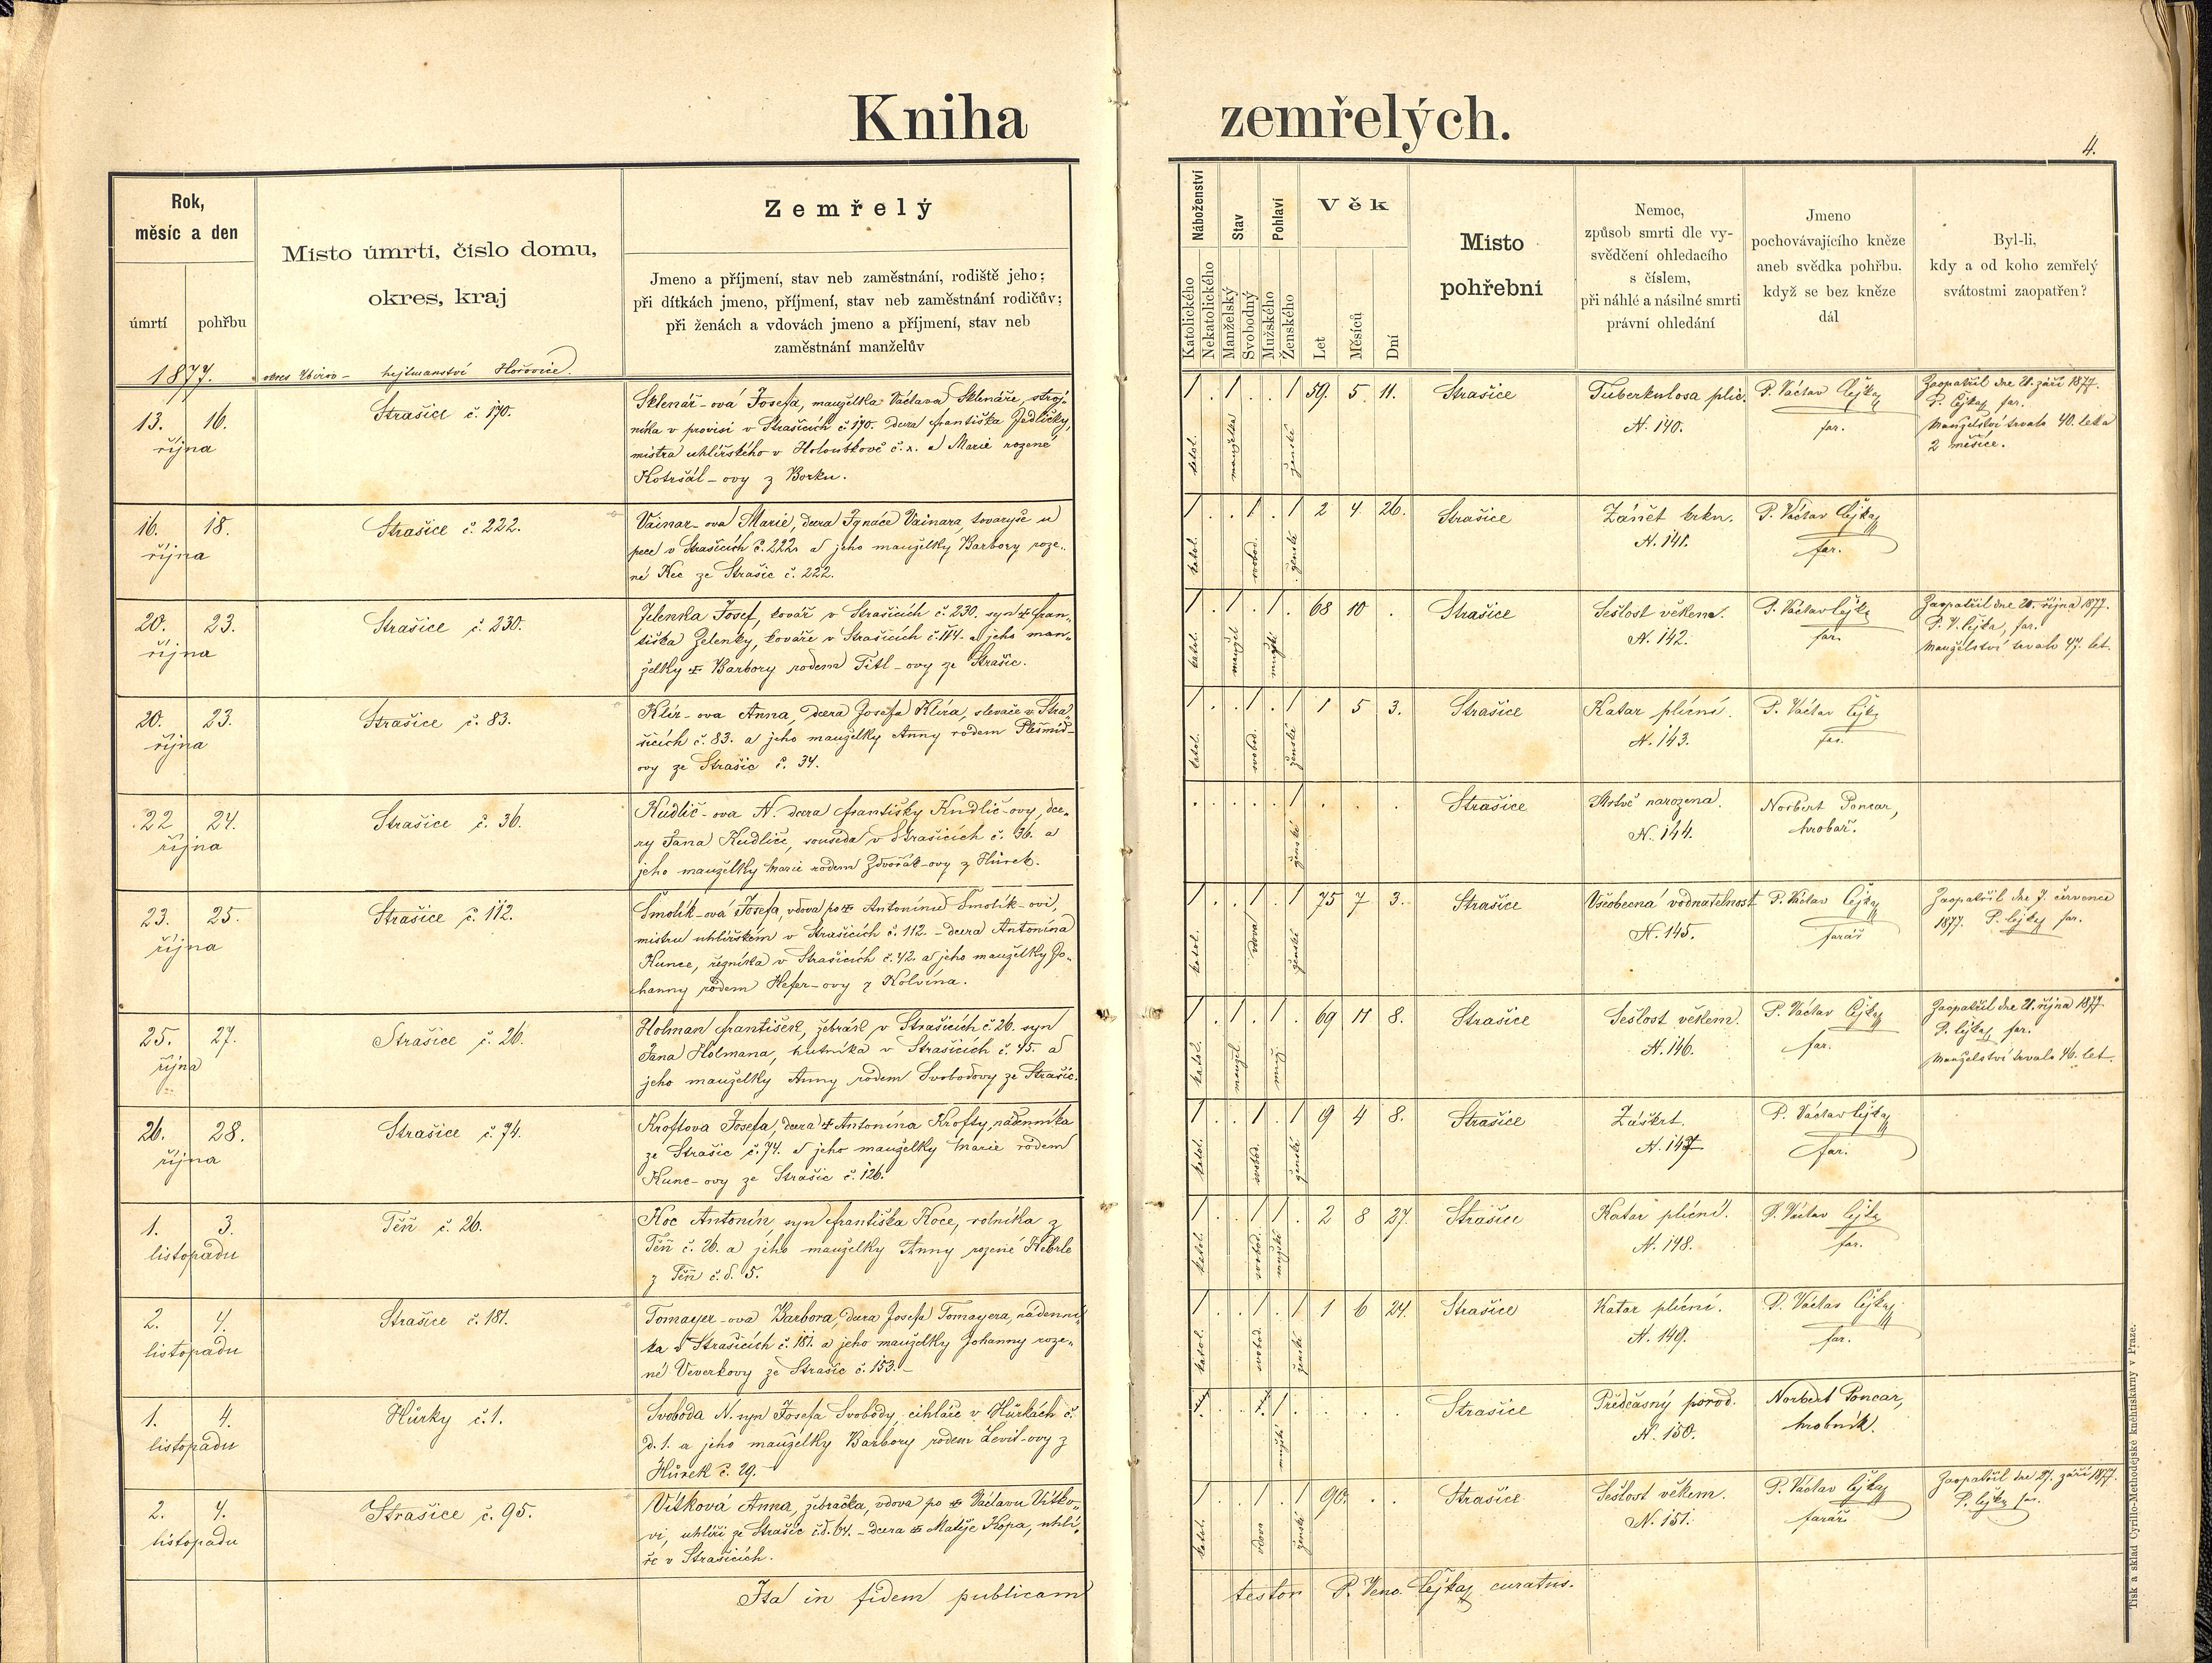 Kniha zemřelých.
4.
Rok,
měsíc a den
úmrtí
pohřbu
Místo úmrtí, číslo domu,
okres, kraj
Zemřelý
Jmeno a příjmení, stav neb zaměstnání, rodiště jeho;
při dítkách jmeno, příjmení, stav neb zaměstnání rodičův;
při ženách a vdovách jmeno a příjmení, stav neb
zaměstnání manželův
Náboženství
Katolického
Nekatolického
Stav
Manželský
Svobodný
Pohlaví
Mužského
Ženského
Věk
Let
Měsíců
Dní
Místo
pohřební
Nemoc,
způsob smrti dle vy-
svědčení ohledacího
s číslem,
při náhlé a násilné smrti
právní ohledání
Jmeno
pochovávajícího kněze
aneb svědka pohřbu.
když se bez kněze
dál
Byl-li,
kdy a od koho zemřelý
svátostmi zaopatřen?
1877.
okres Zbirov – hejtmanství Hořovice.
13. 16.
října
Strašice č. 170.
Sklenář-ová Josefa, manželka Václava Sklenáře, stroj-
níka v provisi v Strašicích č. 170. dcera Františka Jedličky,
mistra uhlířského v Holoubkově č. x. a Marie rozené
Kotršál-ovy z Borku.
1 . 1 . . 1 59. 5. 11.
katol. manželka ženské
Strašice
Tuberkulosa plic.
N. 140.
P. Václav Cejka
far.
Zaopatřil dne 21. září 1877.
P. Cejka far.
Manželství trvalo 40. let a
2 měsíce.
16. 18.
října
Strašice č. 222.
Vainar-ova Marie, dcera Ignáce Vainara, tovaryše u
pece v Strašicích č. 222. a jeho manželky Barbory roze-
né Kec ze Strašic č. 222.
1 . . 1 . 1 2 4. 26.
katol. svobod. ženské
Strašice
Zánět krku.
N. 141.
P. Václav Cejka
far.
20. 23.
října
Strašice č. 230.
Zelenka Josef, kovář v Strašicích č. 230. syn ✠ Fran-
tiška Zelenky, kováře v Strašicích č. 114. a jeho man-
želky ✠ Barbory rodem Titl-ovy ze Strašic.
1 . 1 . 1 . 68 10 .
katol. manžel mužské
Strašice
Sešlost věkem.
N. 142.
P. Václav Cejka
far.
Zaopatřil dne 20. října 1877.
P. V. Cejka, far.
Manželství trvalo 47. let.
20. 23.
října
Strašice č. 83.
Klír-ova Anna, dcera Josefa Klíra, slevače v Stra-
šicích č. 83. a jeho manželky Anny rodem Plešmíd-
ovy ze Strašic č. 34.
1 . . 1 . 1 1 5 3.
katol. svobod. ženské
Strašice
Katar plicní.
N. 143.
P. Václav Cejka
far.
22 24.
října
Strašice č. 36.
Kudlič-ova N. dcera Františky Kudlič-ovy, dce-
ry Jana Kudliče, souseda v Strašicích č. 36. a
jeho manželky Marie rodem Zdvořák-ovy z Hůrek.
. . . . . 1 . . .
ženské
Strašice
Mrtvě narozena.
N. 144.
Norbert Poncar,
hrobař.
23. 25.
října
Strašice č. 112.
Smolík-ová Josefa, vdova po ✠ Antonínu Smolík-ovi,
mistru uhlířském v Strašicích č. 112. – dcera Antonína
Kunce, řezníka v Strašicích č. 42. a jeho manželky Jo-
hanny rodem Hefer-ovy z Kolvína.
1 . . 1 . 1 75 7 3.
katol. vdova ženské
Strašice
Všeobecná vodnatelnost
N. 145.
P. Václav Cejka
farář
Zaopatřil dne 7. července
1877. P. Cejka far.
25. 27.
října
Strašice č. 26.
Holman František, žebrák v Strašicích č. 26. syn
Jana Holmana, hutníka v Strašicích č. 45. a
jeho manželky Anny rodem Svobodovy ze Strašic.
1 . 1 . 1 . 69 11 8.
katol. manžel. muž.
Strašice
Sešlost věkem.
N. 146.
P. Václav Cejka
far.
Zaopatřil dne 21. října 1877.
P. Cejka, far.
Manželství trvalo 46. let.
26. 28.
října
Strašice č. 74.
Kroftova Josefa, dcera ✠ Antonína Krofty, nádenníka
ze Strašic č. 74. a jeho manželky Marie rodem
Kunc-ovy ze Strašic č. 126.
1 . . 1 . 1 9 4 8.
katol. svobod. ženské
Strašice
Záškrt.
N. 147
P. Václav Cejka
far.
1. 3.
listopadu
Těň č. 26.
Koc Antonín, syn Františka Koce, rolníka z
Těň č. 26. a jeho manželky Anny rozené Heberle
z Těň č. d. 5.
1 . . 1 1 . 2 8 27.
katol. svobod. mužské
Strašice
Katar plicní.
N. 148.
P. Václav Cejka
far.
2. 4.
listopadu
Strašice č. 181.
Tomayer-ova Barbora, dcera Josefa Tomayera, nádenní-
ka v Strašicích č. 181. a jeho manželky Johanny roze-
né Veverkovy ze Strašic č. 153. –
1 . . 1 . 1 1 6 24.
katol. svobod. ženské
Strašice
Katar plicní.
N. 149.
P. Václav Cejka
far.
1. 4.
listopadu
Hůrky č. 1.
Svoboda N. syn Josefa Svobody, cihláře v Hůrkách č.
d. 1. a jeho manželky Barbory rodem Levit-ovy z
Hůrek č. 29. –
1 . . 1 1 . . . .
mužské
Strašice
Předčasný porod.
N. 150.
Norbert Poncar,
hrobník.
2. 4.
listopadu
Strašice č. 95.
Vítková Anna, žebračka, vdova po ✠ Václavu Vítko-
vi, uhlíři ze Strašic č. d. 64. – dcera ✠ Matěje Kopa, uhlí-
ře v Strašicích.
1 . . 1 . 1 90. . .
katol. vdova ženské
Strašice
Sešlost věkem.
N. 151.
P. Václav Cejka
farář
Zaopatřil dne 27. září 1877.
P. Cejka far.
Ita in fidem publicam testor P. Venc. Cejka, curatus.
Tisk a sklad Cyrillo-Methodějské knihtiskárny v Praze.